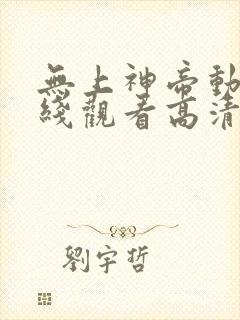 無上神帝動
綫觀看高清
劉宇哲